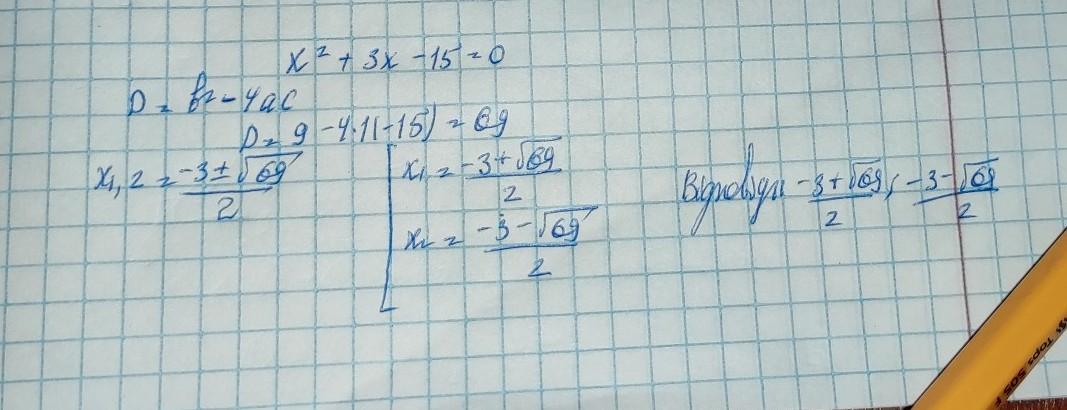 x² + 3x - 15 = 0
D = b² - 4ac
D = 9 - 4·1(-15) = 69
x₁,₂ = (-3 ± √69)/2
x₁ = (-3 + √69)/2
x₂ = (-3 - √69)/2
Відповідь: (-3 + √69)/2; (-3 - √69)/2
Tops 505 F